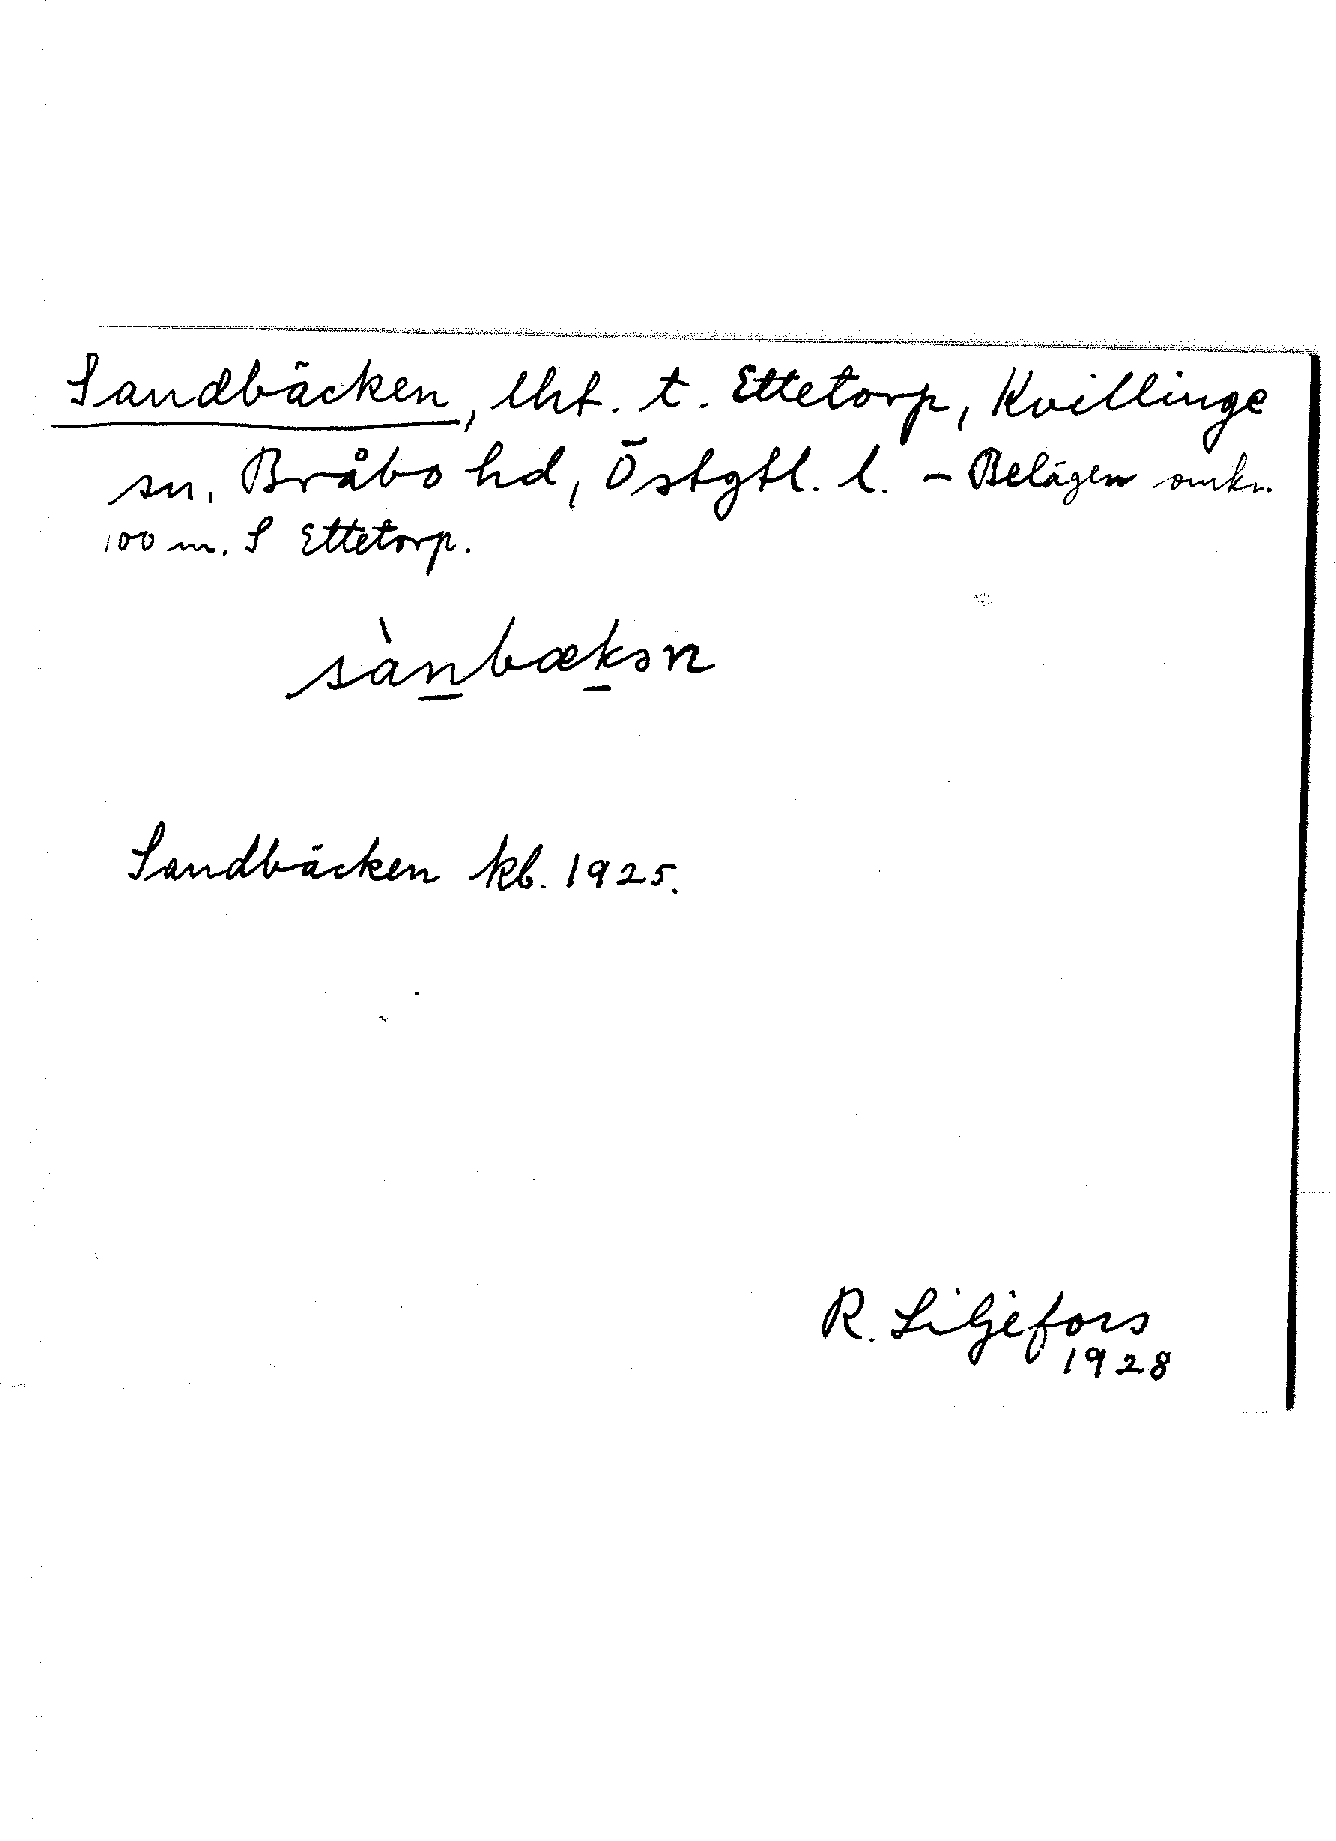 Sandbäcken, lht. t. Ettetorp, Kvillinge
sn, Bråbo hd, Östgtl. l. – Belägen omkr.
100 m. S Ettetorp.
sànbækən
Sandbäcken kb. 1925.
R. Liljefors
1928